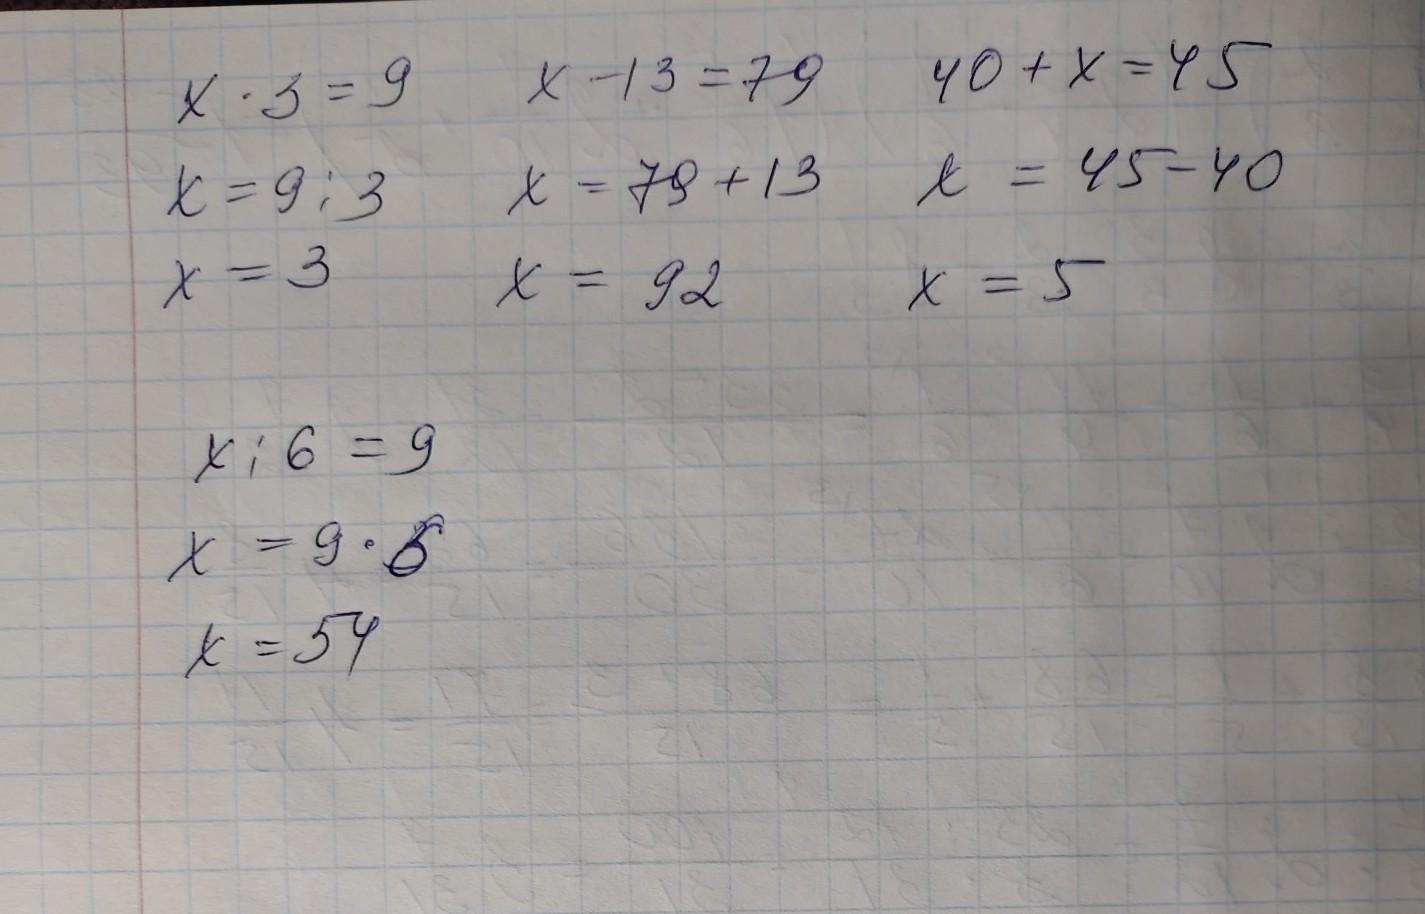 x · 3 = 9   x - 13 = 79   40 + x = 45
x = 9 : 3   x = 79 + 13   x = 45 - 40
x = 3   x = 92   x = 5
x : 6 = 9
x = 9 · 6
x = 54